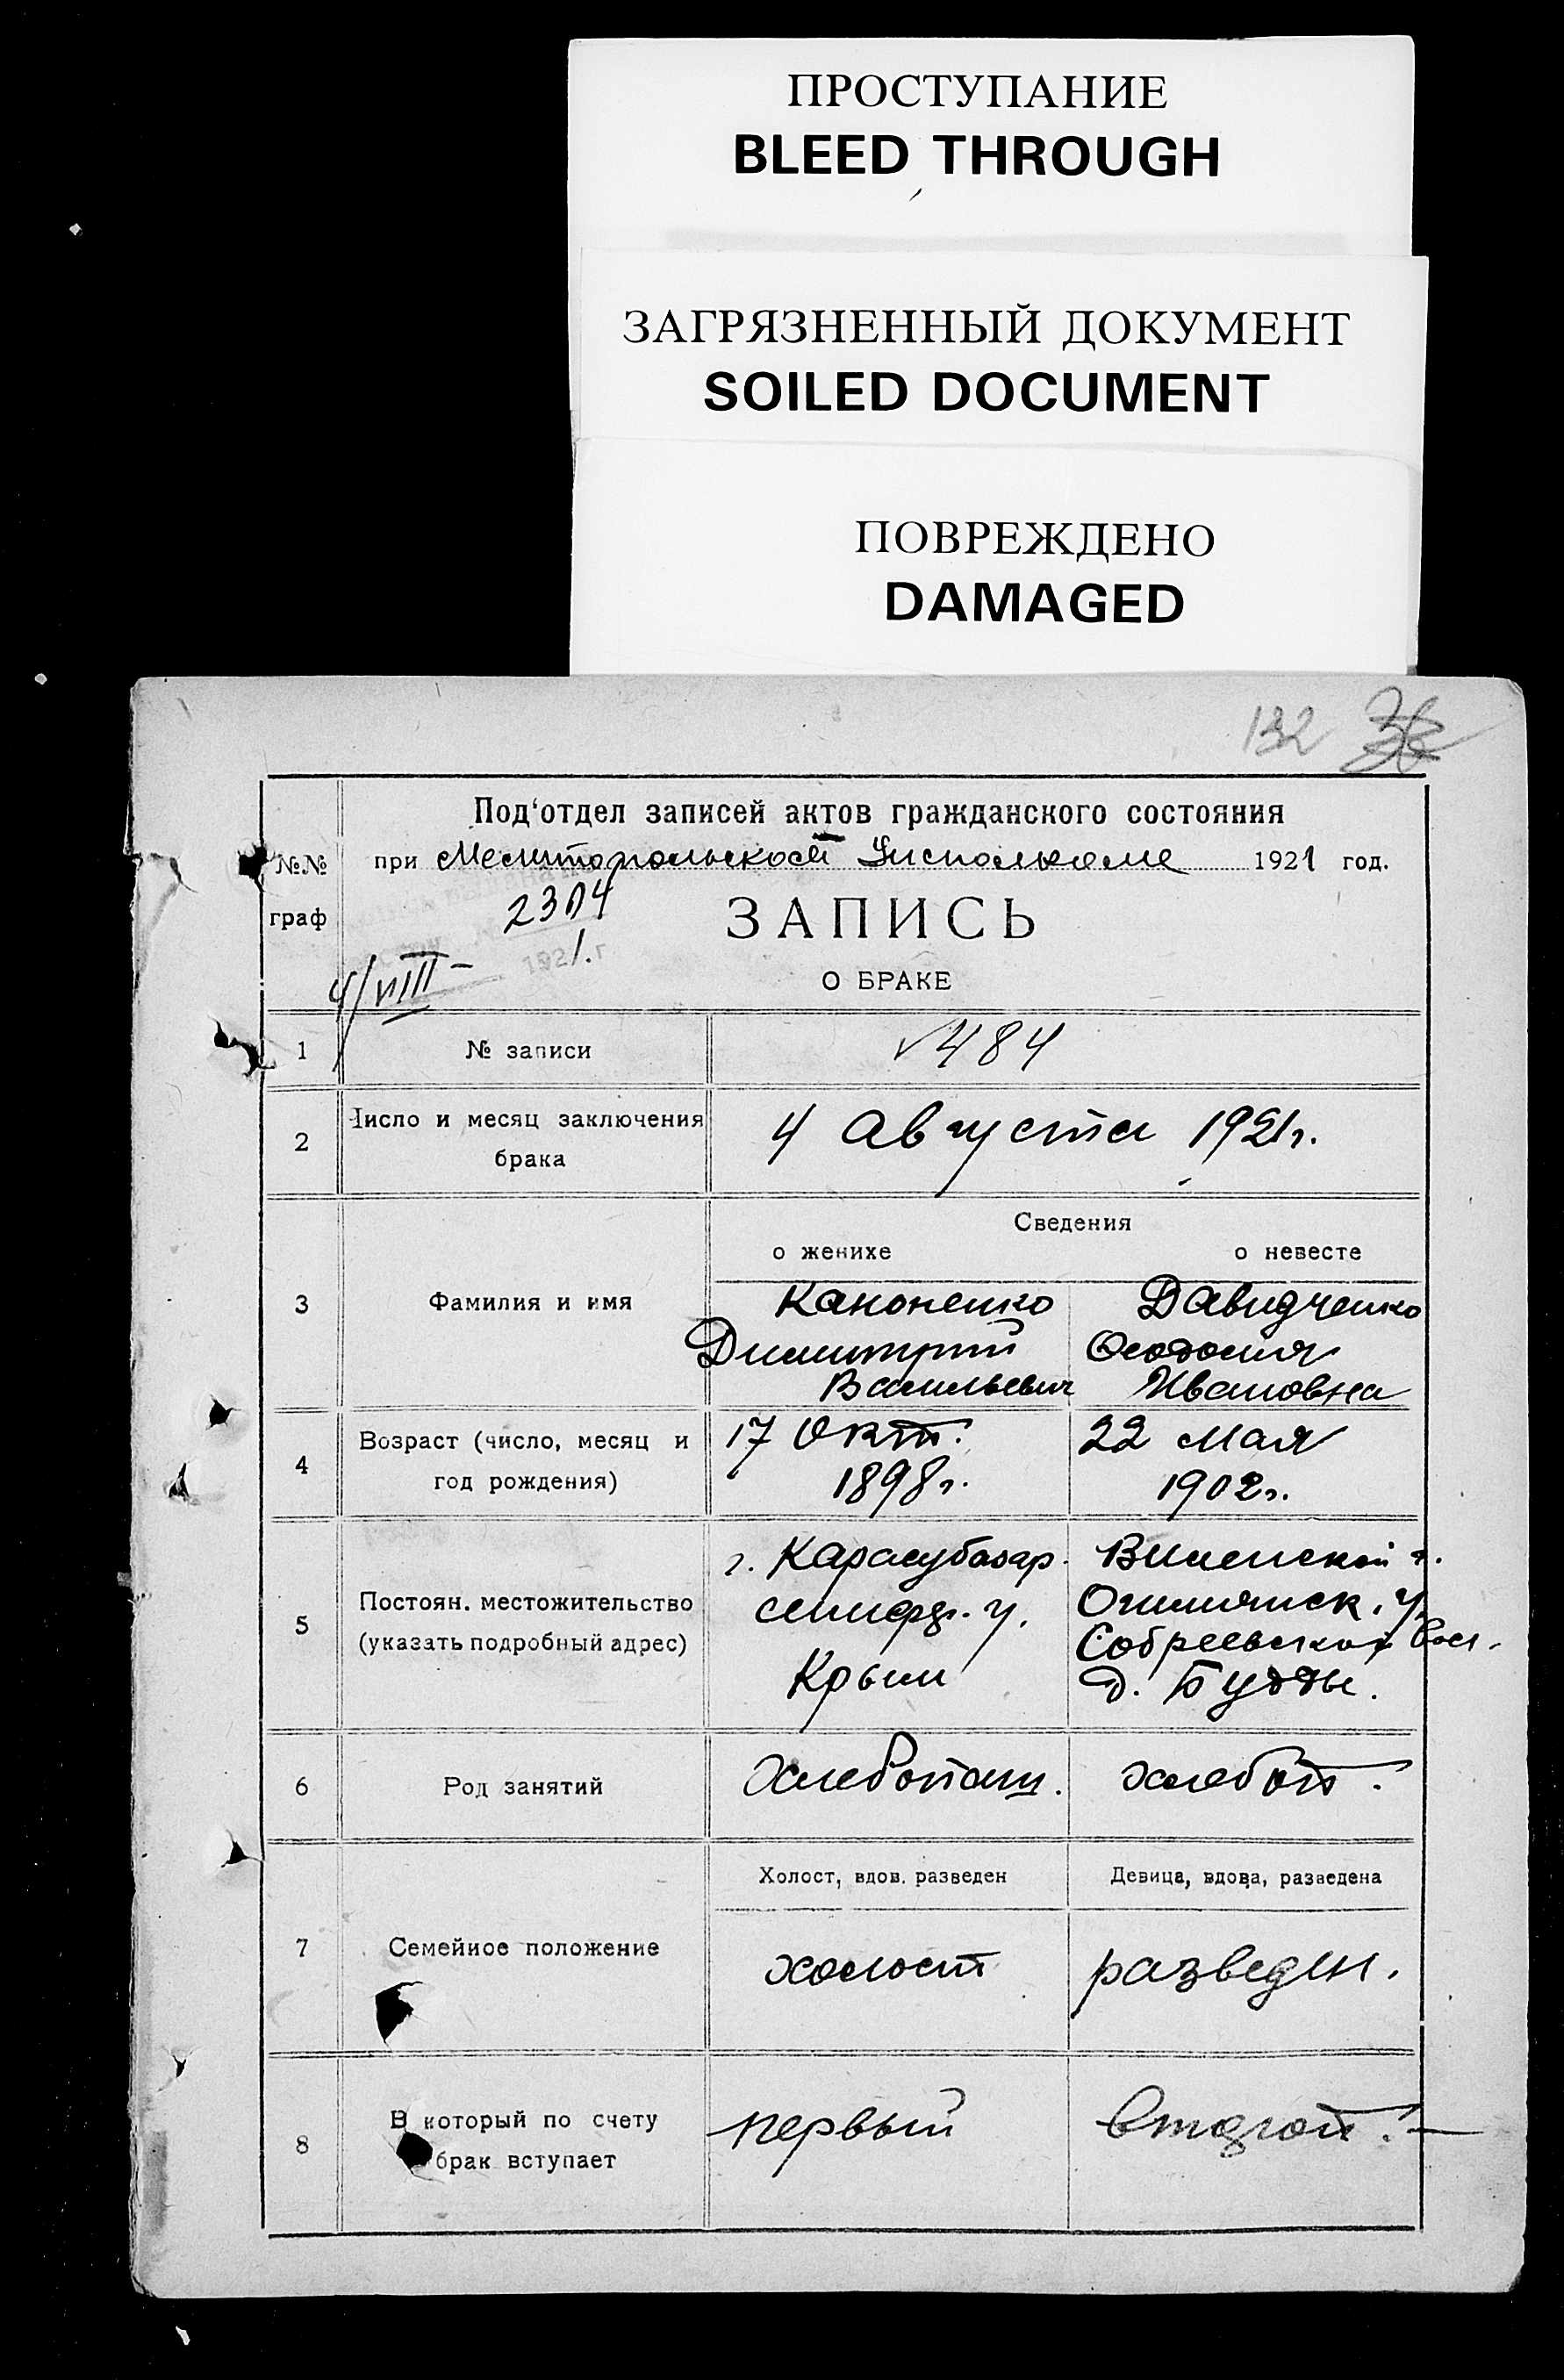 ПРОСТУПАНИЕ
BLEED THROUGH
ЗАГРЯЗНЕННЫЙ ДОКУМЕНТ
SOILED DOCUMENT
ПОВРЕЖДЕНО
DAMAGED
132
Под'отдел записей актов гражданского состояния
№№ при Мелитопольском Исполкоме 1921 год.
граф
2304
ЗАПИСЬ
1921.г
4/VIII-
О БРАКЕ
1 № записи 484
2 Число и месяц заключения брака 4 Августа 1921г.
Сведения
о женихе о невесте
3 Фамилия и имя Кононенко Давидченко
Димитрий Феодосия
Васильевич Ивановна
4 Возраст (число, месяц и 17 Окт. 22 мая
год рождения) 1898г. 1902г.
5 Постоян. местожительство г. Карасубазар Виленской г.
(указать подробный адрес) симфр. у. Ошмянск. у.
Крым д. Будды.
6 Род занятий Хлебопаш. хлебоп.
Холост, вдов. разведен Девица, вдова, разведена
7 Семейное положение холост разведен.
8 В который по счету первый второй.-
брак вступает